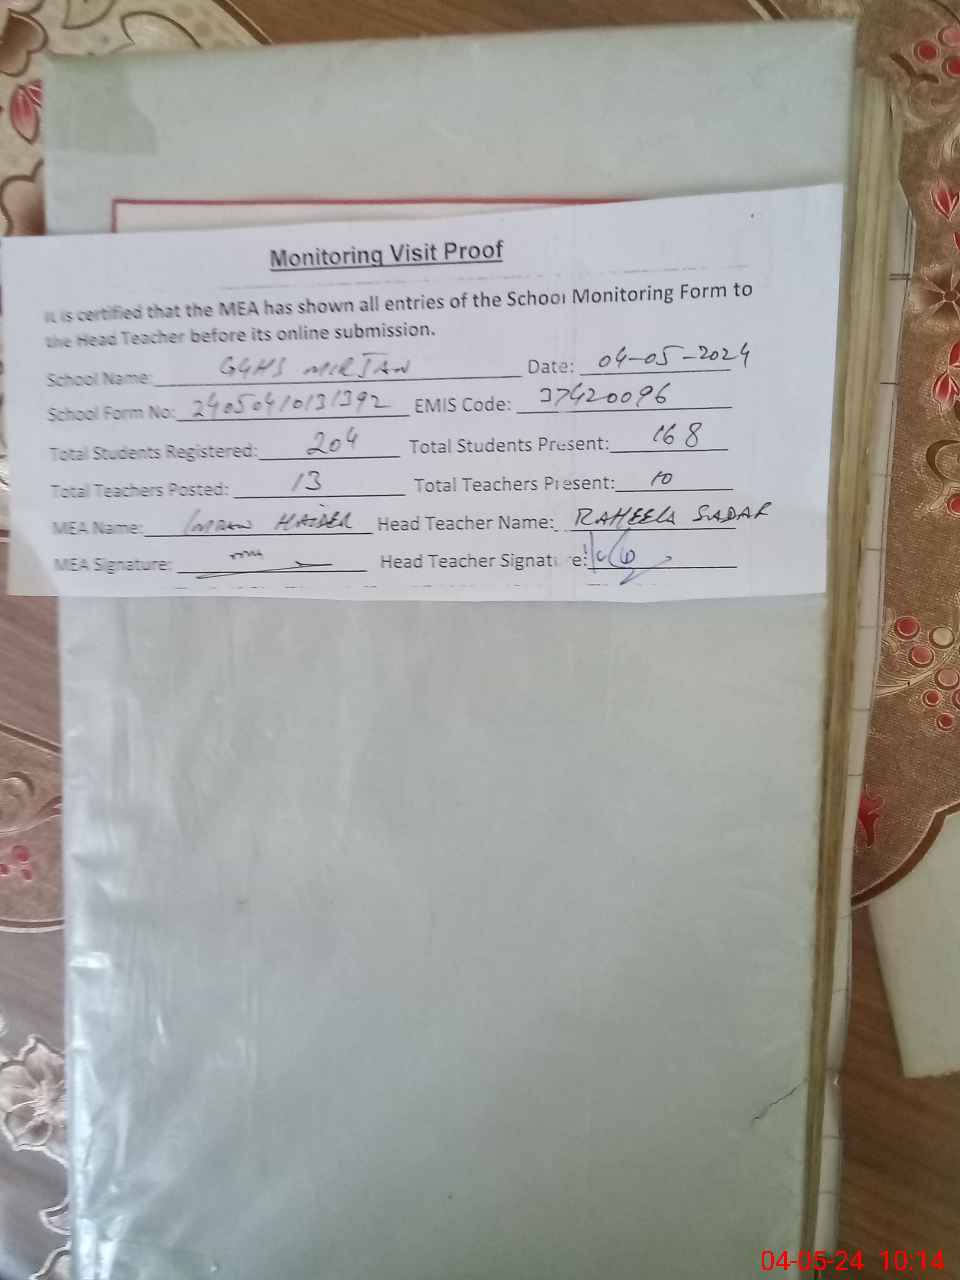 Monitoring Visit Proof
It is certified that the MEA has shown all entries of the School Monitoring Form to
the Head Teacher before its online submission.
School Name: GGHS MIRJAN Date: 04-05-2024
School Form No: EMIS Code: 37420096
Total Students Registered: 204 Total Students Present: 168
Total Teachers Posted: 13 Total Teachers Present: 10
MEA Name: IMRAN HAIDER Head Teacher Name: RAHEELA SADAF
MEA Signature: Head Teacher Signature:
04-05-24 10:14